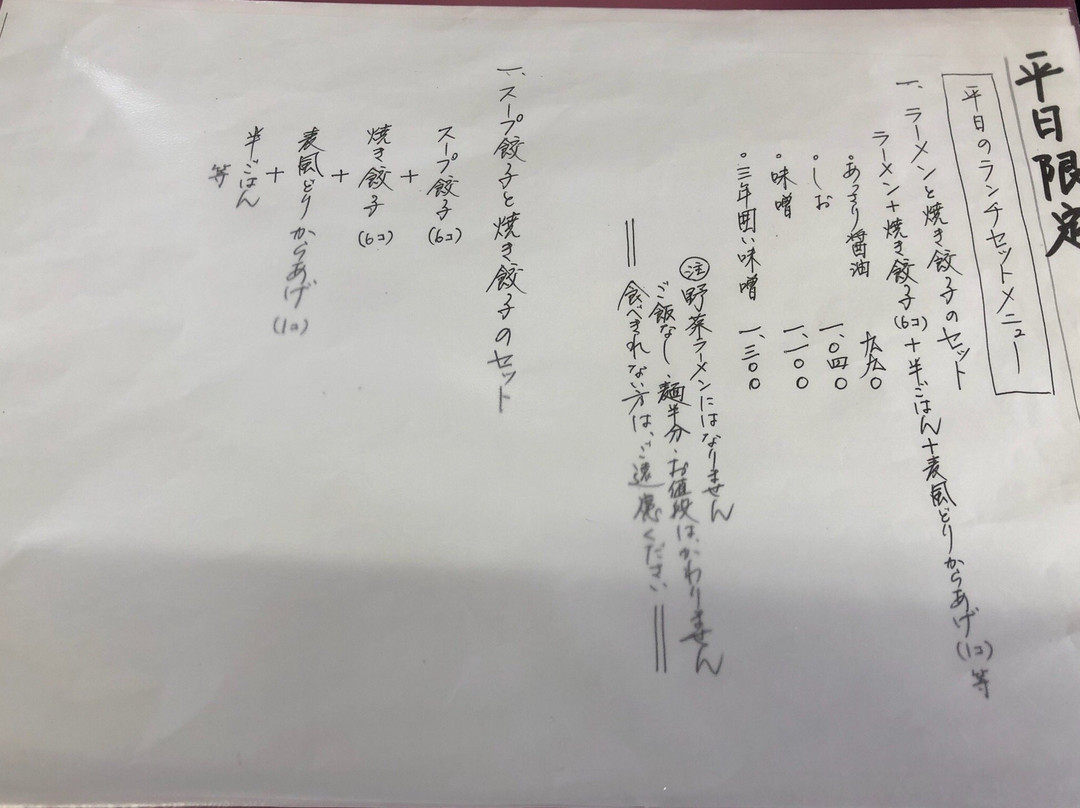 平日限定
平日のランチセットメニュー
一、ラーメンと焼き餃子のセット
ラーメン+焼き餃子(6コ)+半ごはん+表風どりからあげ(1コ)等
・あっさり醤油 九九〇
・しお 一、〇四〇
・味噌 一、一〇〇
・三年囲い味噌 一、三〇〇
㊟野菜ラーメンにはなりません
ご飯なし・麺半分・お値段は、かわりません
＝食べきれない方は、ご遠慮ください＝
一、スープ餃子と焼き餃子のセット
スープ餃子(6コ)
+
焼き餃子(6コ)
+
表風どりからあげ(1コ)
+
半ごはん
等